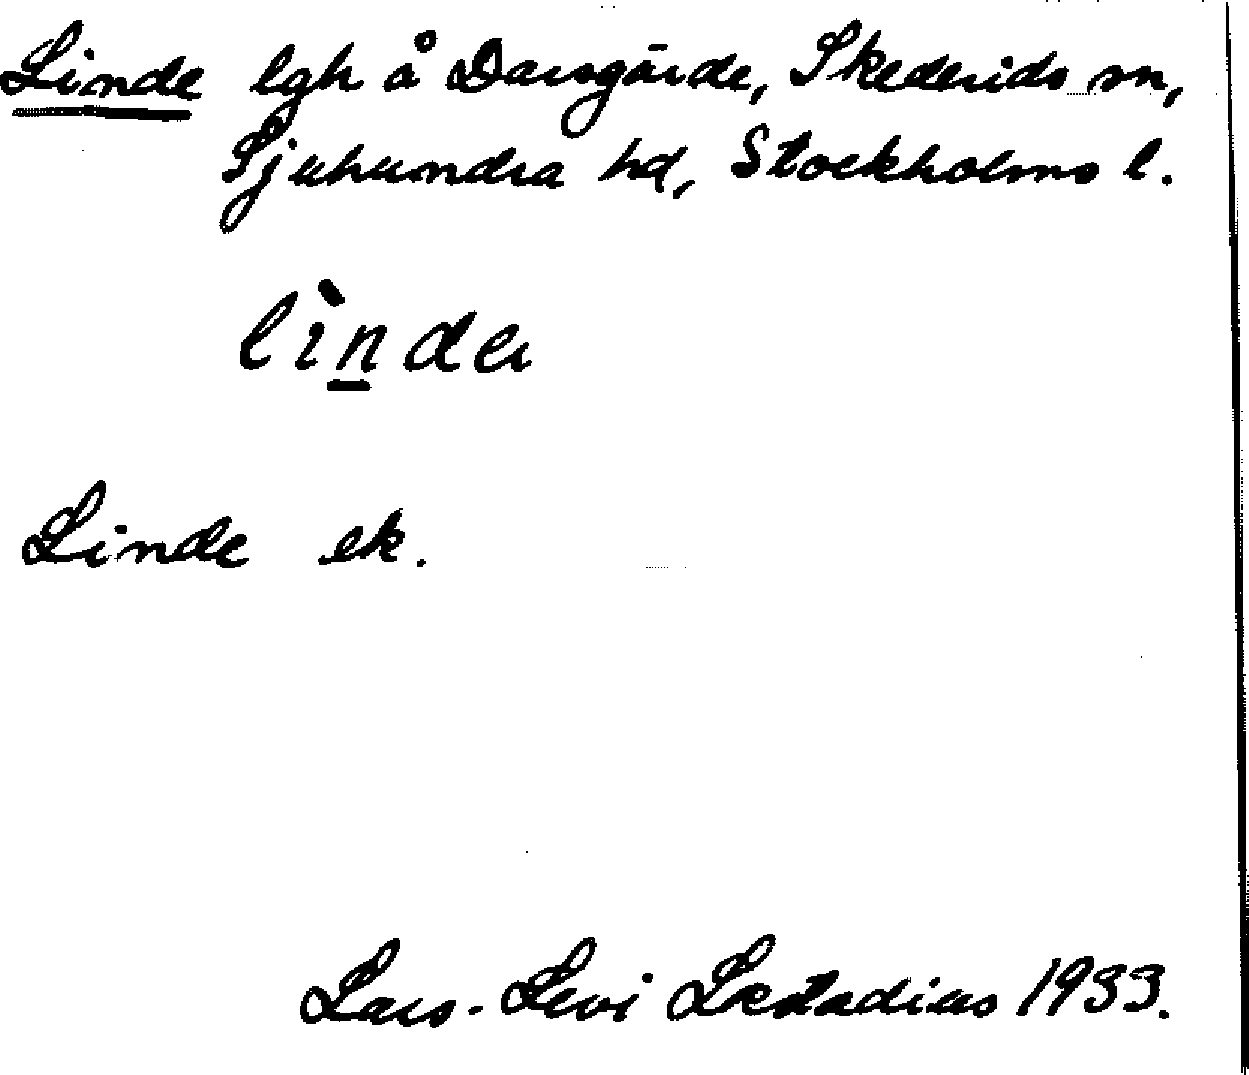 Linde lgh å Darsgärde, Skederids sn,
Sjuhundra hd, Stockholms l.
lìnda
Linde ek.
Lars-Levi Læstadius 1933.